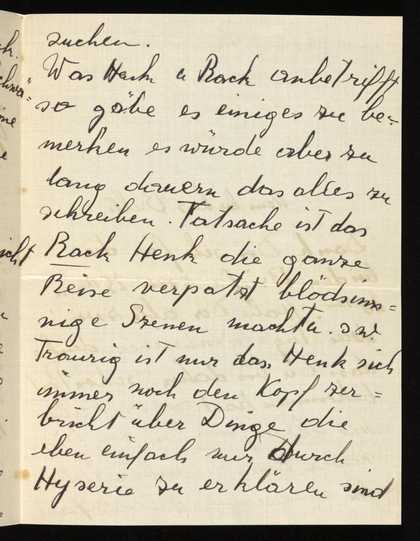 suchen.
Was Henk u Rack anbetrifft
so gäbe es einiges zu be=
merken es würde aber zu
lang dauern das alles zu
schreiben. Tatsache ist das
Rack Henk die ganze
Reise verpatzt blödsin=
nige Szenen machte. usw
Traurig ist nur das Henk sich
immer noch den Kopf zer=
bricht über Dinge die
eben einfach nur durch
Hyserie zu erklären sind